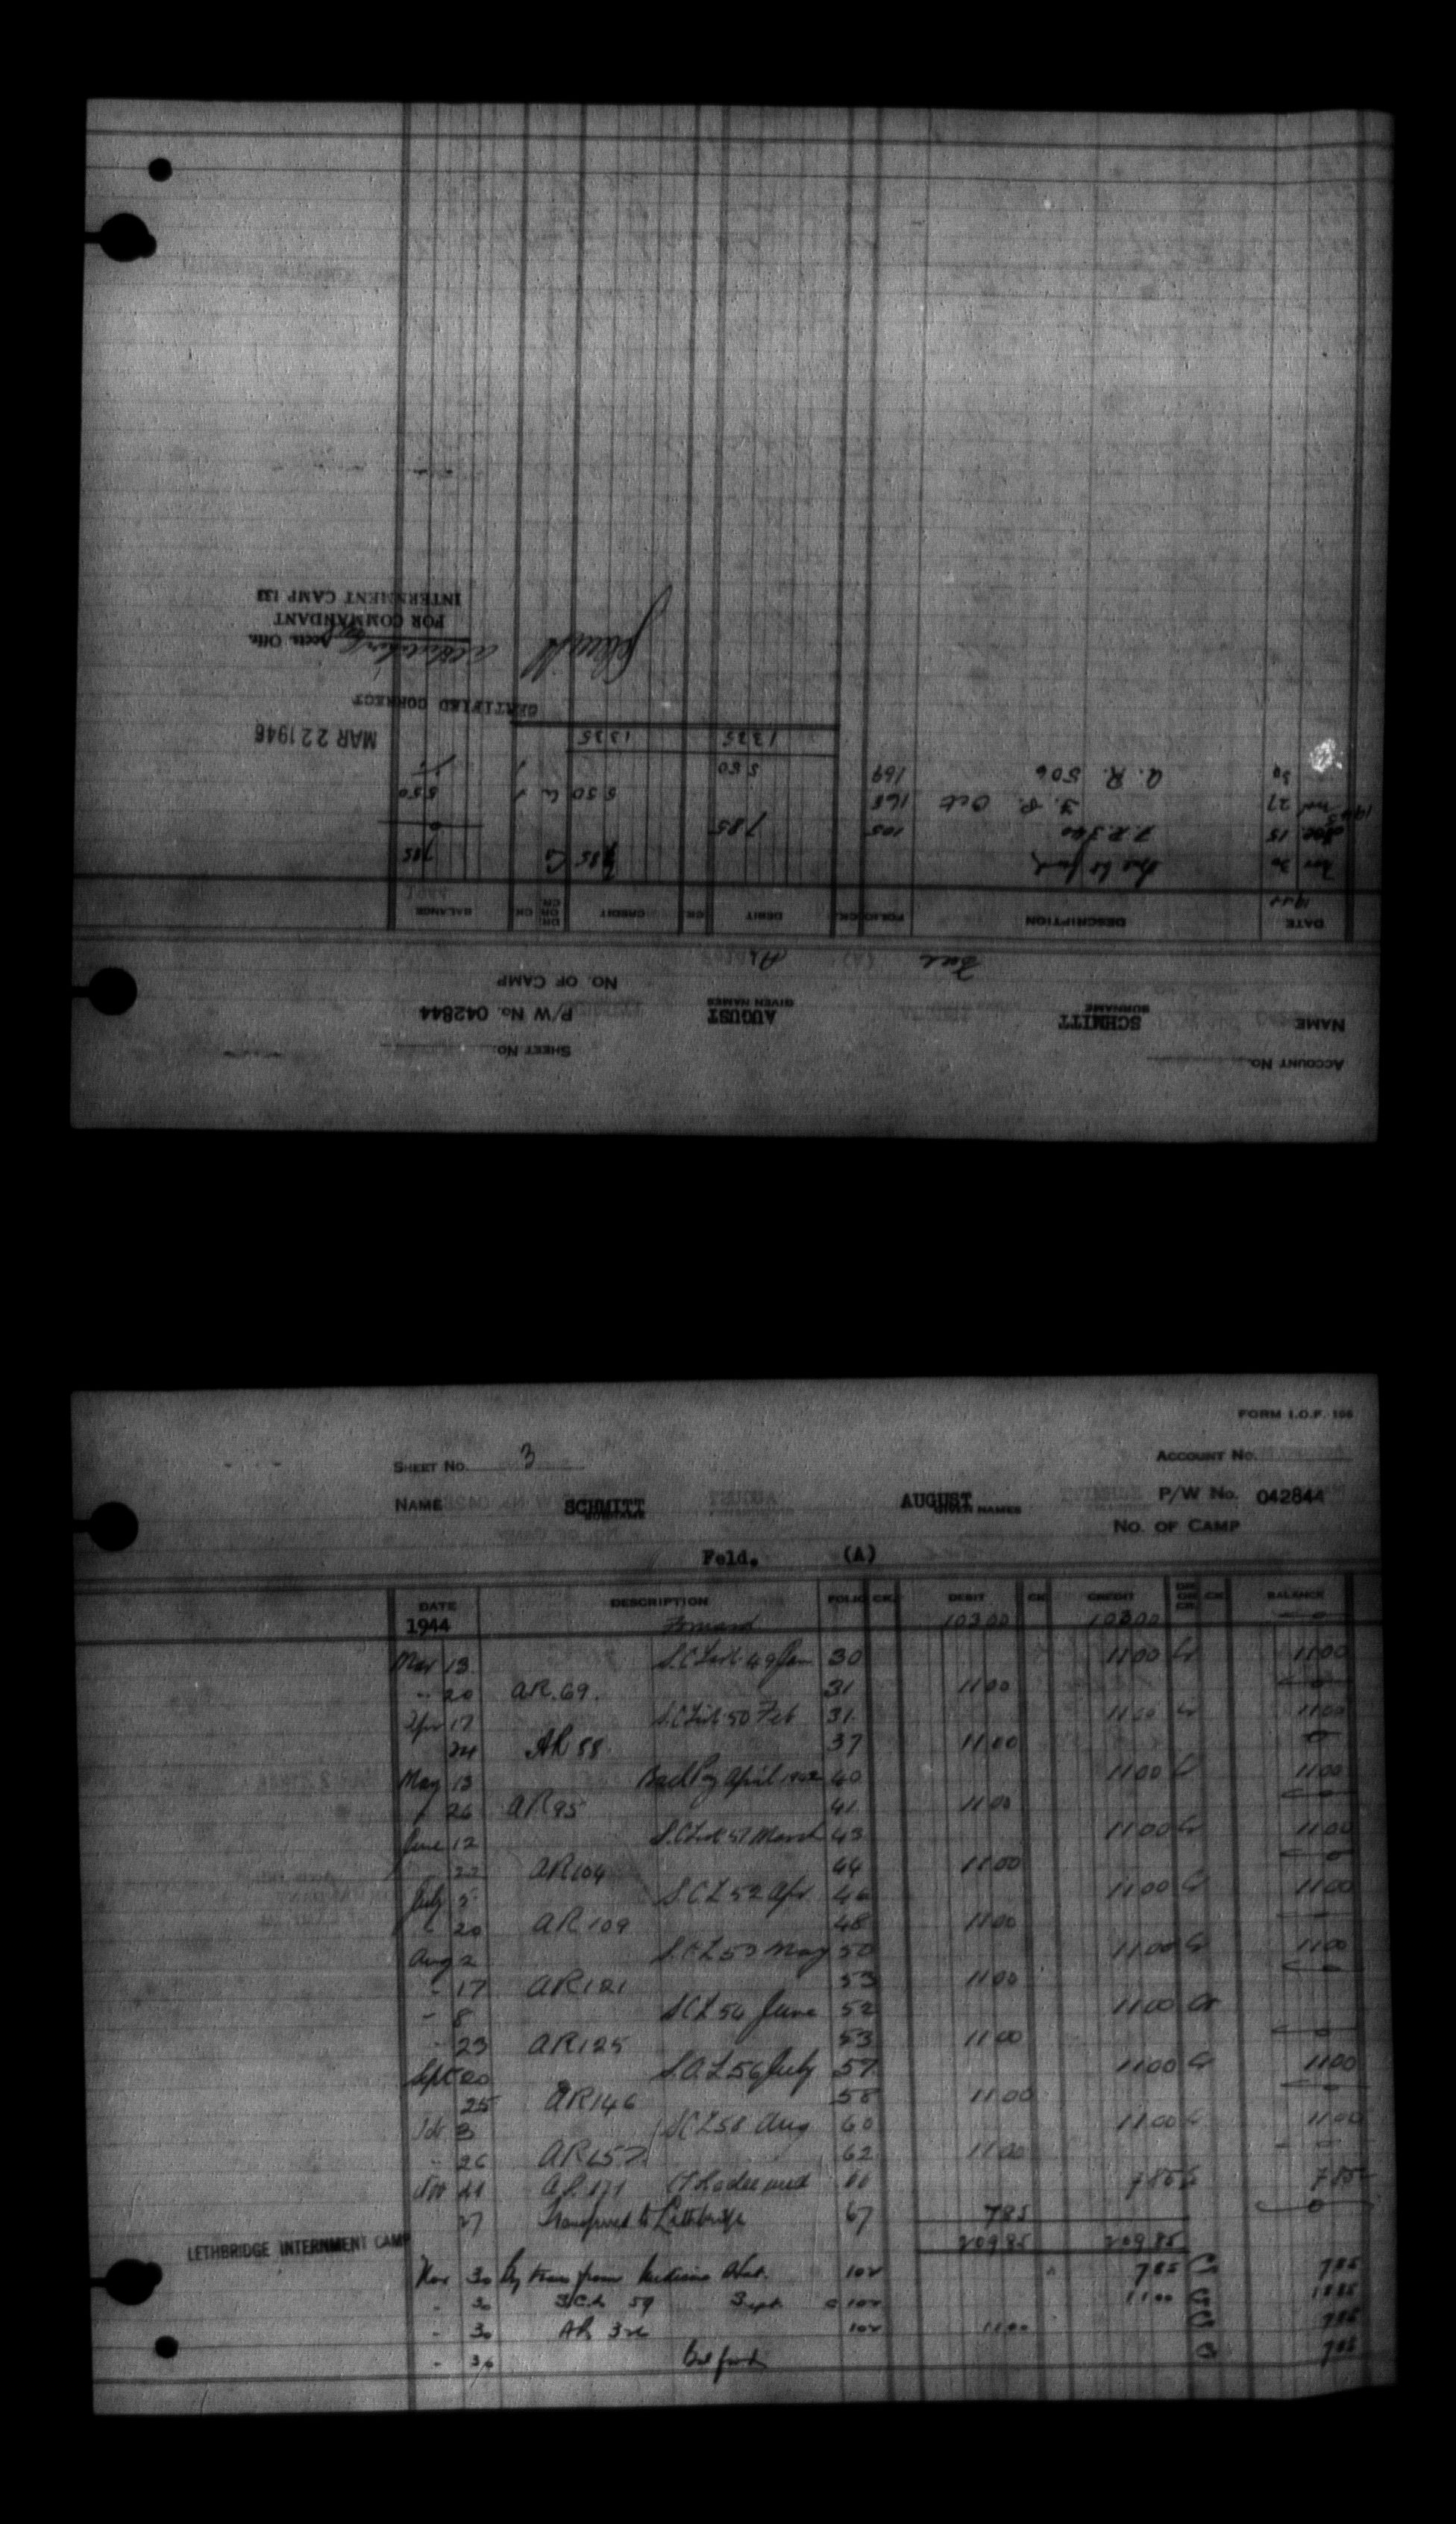 INTERNMENT CAMP 133
FOR COMMANDANT
Accts. Offr.
CERTIFIED CORRECT
MAR 22 1946
1325 1325
30 A. R. 506 169 550
1945 27 F. P. Oct 168 550 Cr 550
Dec 15 105 785 0
Nov 30 785 Cr 785
1944
DATE DESCRIPTION FOLIO CK. DEBIT CK. CREDIT DR OR CR CK. BALANCE
(A)
NO. OF CAMP
NAME SCHMITT SURNAME AUGUST GIVEN NAMES P/W No. 042844
ACCOUNT No. SHEET No.
FORM I.O.F. 166
SHEET No. 3 ACCOUNT No.
NAME SCHMITT SURNAME AUGUST GIVEN NAMES P/W No. 042844
NO. OF CAMP
Feld. (A)
DATE DESCRIPTION FOLIO CK. DEBIT CK. CREDIT DR OR CR CK BALANCE
1944 Forward 103 00 103 00 0
Mar 13 S.C. List 49 Jan 30 11 00 Cr 11 00
" 20 A.R. 69. 31 11 00 0
Apr 17 S.C List 50 Feb 31 11 00 Cr 11 00
24 AR 88 37 11 00 0
May 13 Back Pay April 1942 40 11 00 Cr 11 00
" 26 AR 95 41 11 00 0
June 12 S.C List 51 March 43 11 00 Cr 11 00
22 AR 104 44 11 00 0
July 5 S.C L 52 Apr. 46 11 00 Cr 11 00
" 20 AR 109 48 11 00
Aug 2 S.C.L 53 May 50 11 00 Cr 11 00
" 17 AR 121 53 11 00 0
- 8 S.C L 54 June 52 11 00 Cr
" 23 AR 125 53 11 00 0
Sept 20 S.C.L 56 July 57 11 00 Cr 11 00
25 AR 146 58 11 00 0
3 S.C L 58 Aug 60 11 00 Cr 11 00
" 26 AR 157 62 11 00 0
Nov 21 A.R. 171 7 85 Cr 7 85
27 Transferred to Lethbridge 67 7 85 0
209 85 209 85
LETHBRIDGE INTERNMENT CAMP
Nov 30 By trans from Medicine Hat. 102 7 85 Cr 7 85
" 30 S.C.L 59 Sept. 102 11 00 Cr 18 85
" 30 AR 102 11 00 Cr 7 85
" 30 Bal fwd Cr 7 85